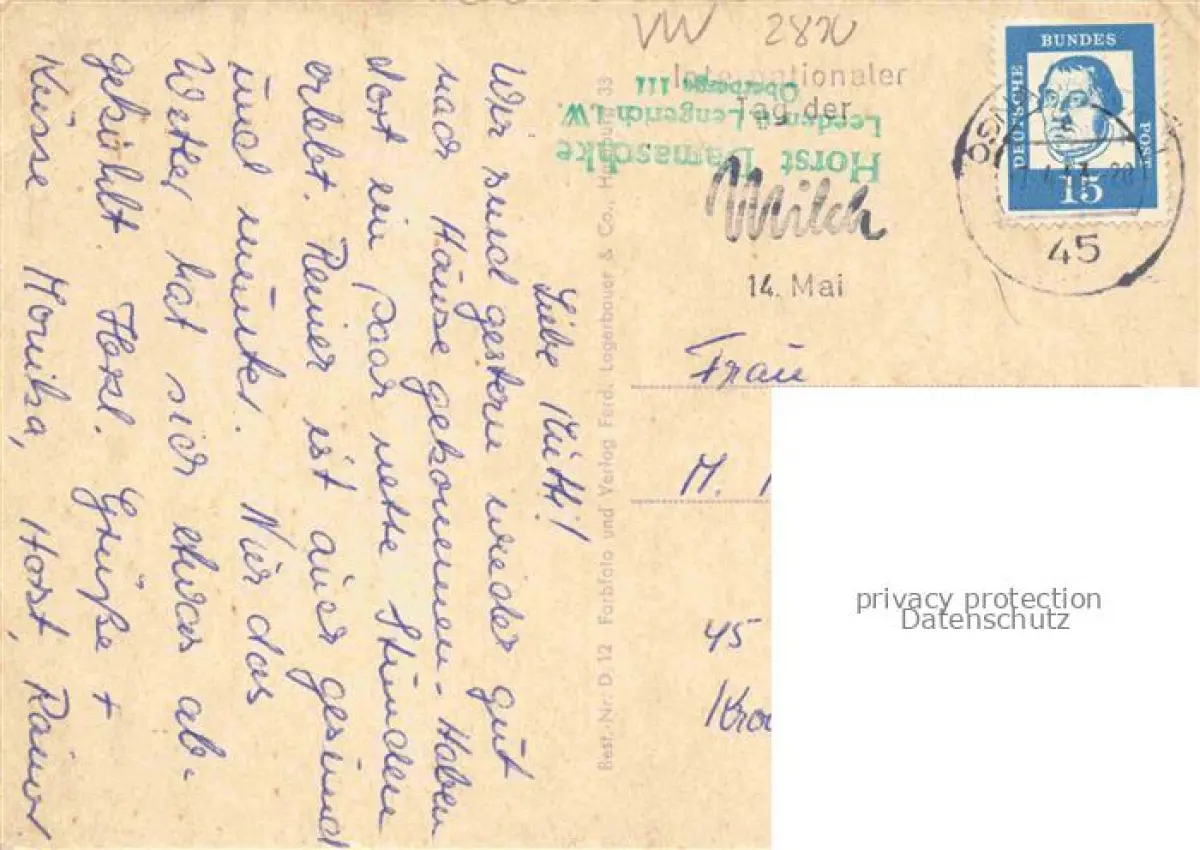 VW 2820
Internationaler
Tag der
Milch
14. Mai
Horst Damaschke
Leeden ü. Lengerich i. W.
Oberberge 111
DEUTSCHE
BUNDES
POST
15
45
Liebe Mutti!
Wir sind gestern wieder gut
nach Hause gekommen. Haben
dort ein paar nette Stunden
erlebt. Rainer ist auch gesund
und munter. Nur das
Wetter hat sich etwas ab-
gekühlt. Herzl. Grüße +
Küsse Monika, Horst, Rainer
Best.-Nr. D. 12 Farbfoto und Verlag Ferd. Lagerbauer & Co., Hamburg 33
Frau
M.
45
privacy protection
Datenschutz